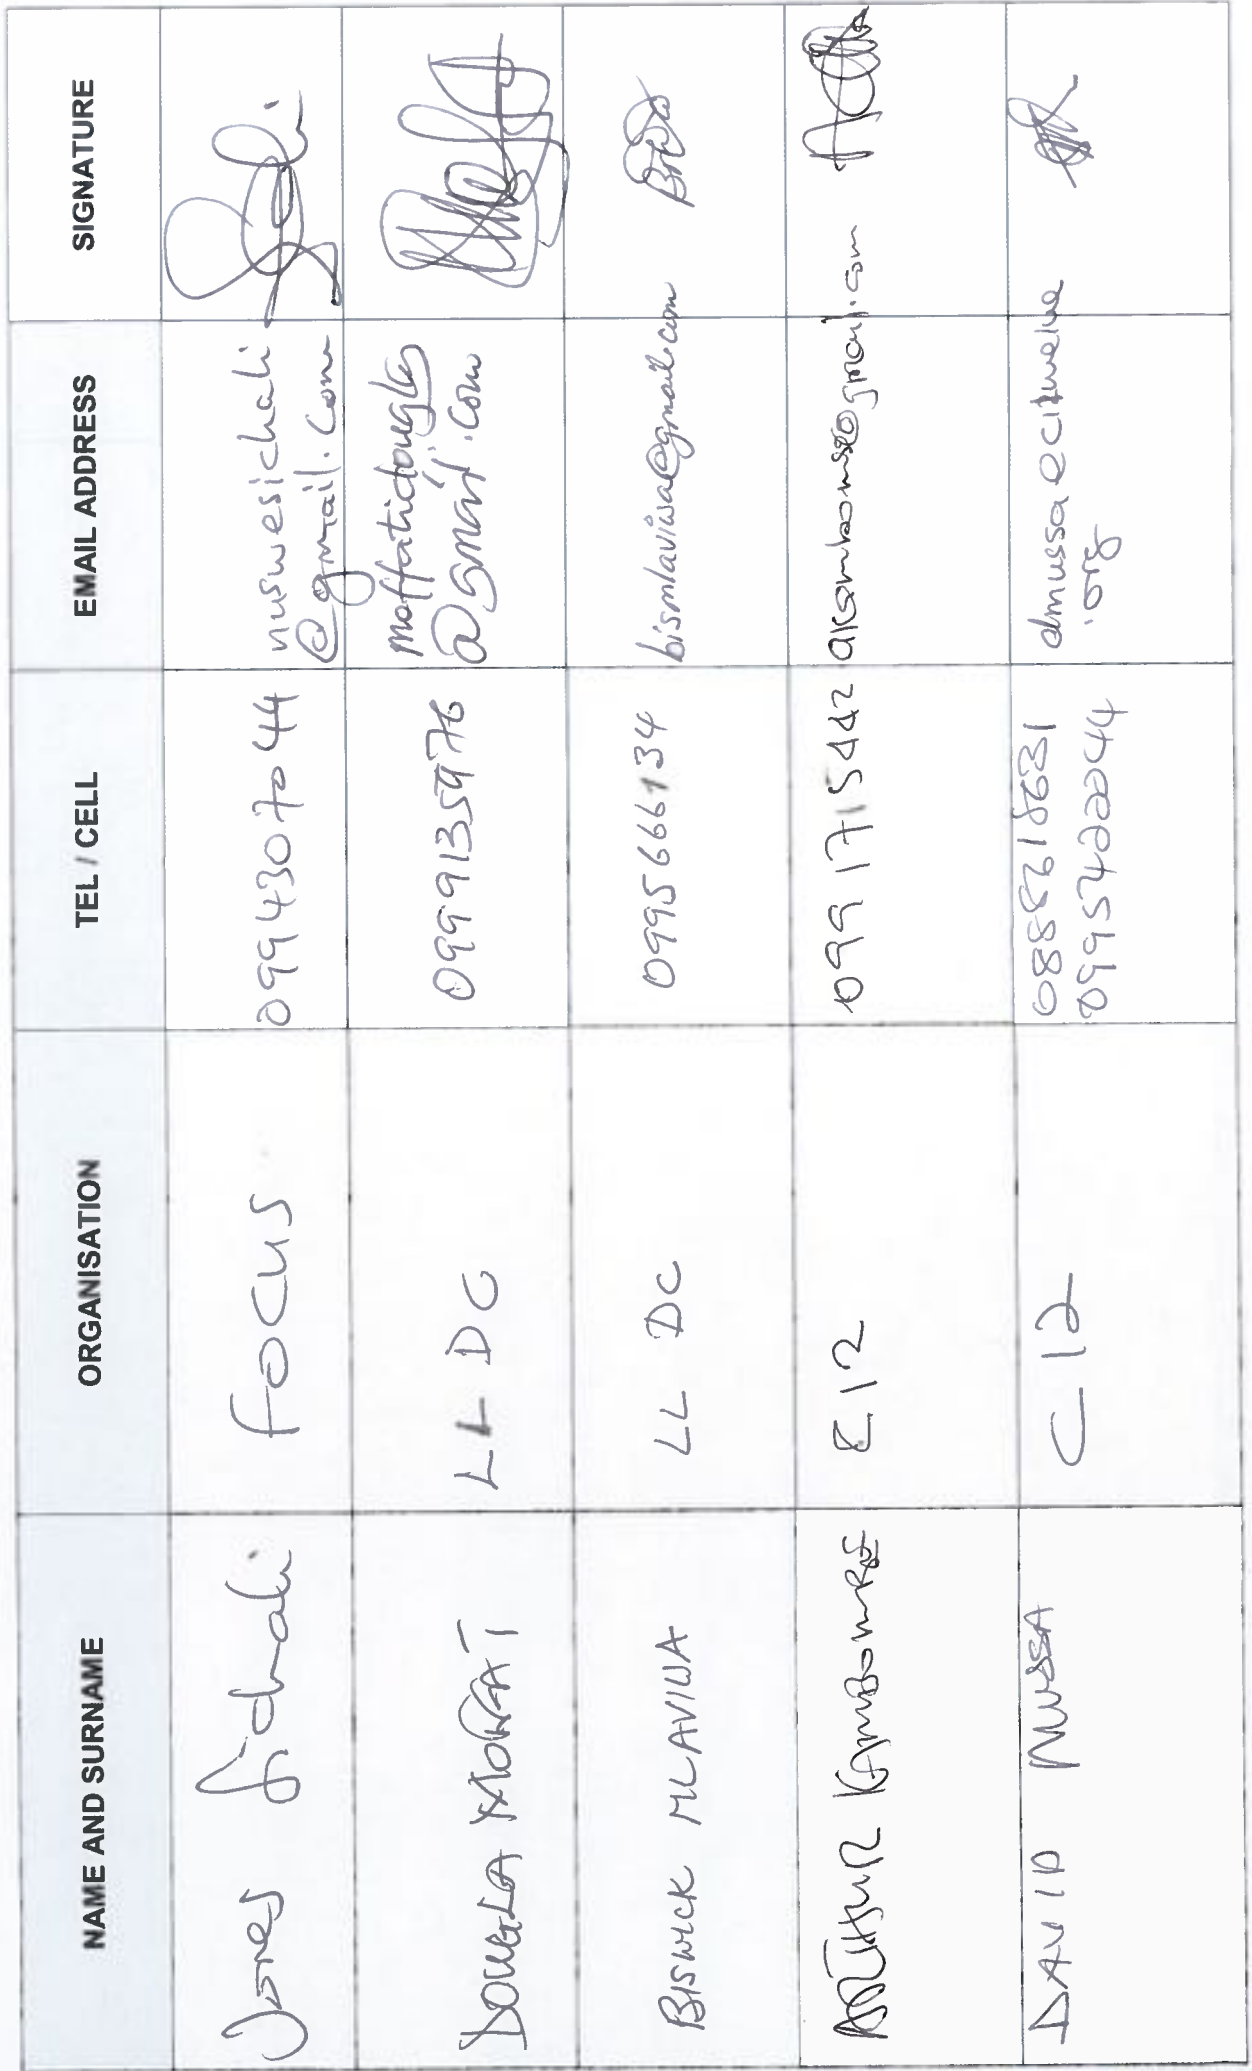 NAME AND SURNAME ORGANISATION TEL / CELL EMAIL ADDRESS SIGNATURE
Jones Sichali FOCUS 0994307044 nuswesichali
@gmail.com
DOUGLA MOFFAT LL DC 0999135976 moffatidouglas
@gmail.com
BISWICK MLAVIWA LL DC 0995666134 bismlaviwa@gmail.com
ARTHUR KAMBOMBE C12 0991715442 akambombe@gmail.com
DAVID MUSSA C12 0888618631 dmussa@citwelve
0995422044 .org